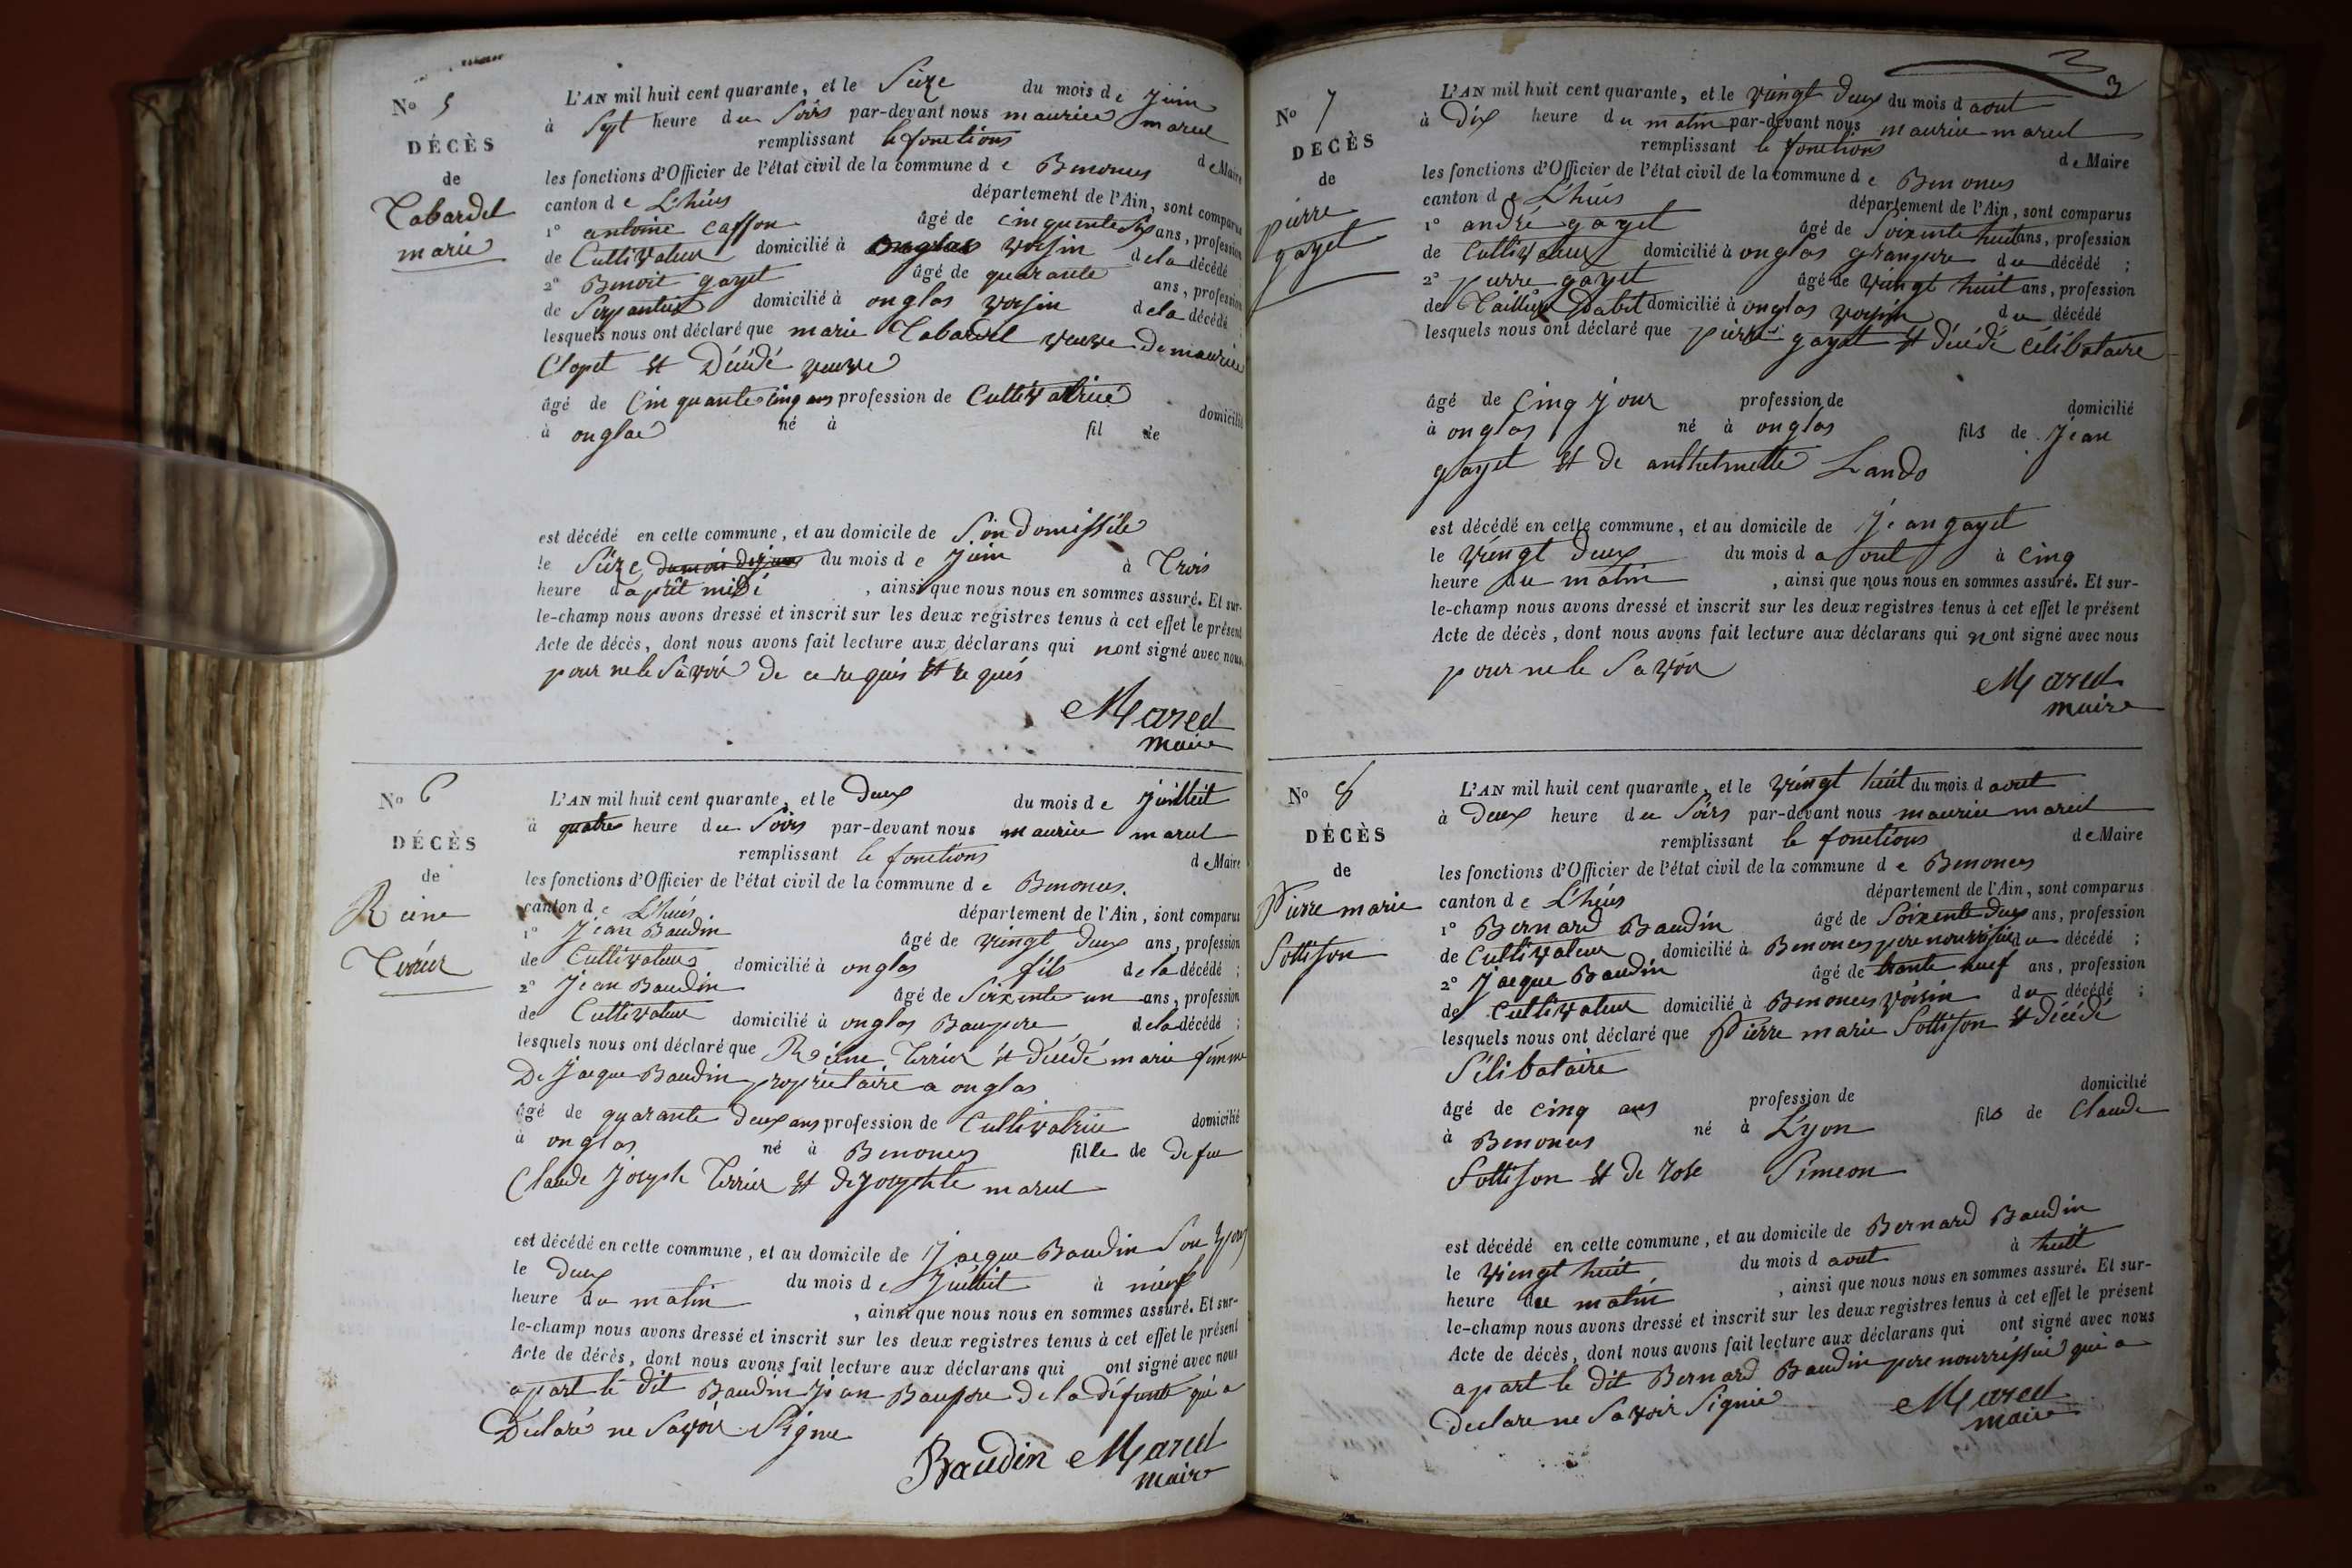 No 5
DÉCÈS
de
Tabardel
marie
L'AN mil huit cent quarante, et le Seize du mois de Juin
à Sept heure du Soirs par-devant nous maurice marel
remplissant le fonctions de Maire
les fonctions d'Officier de l'état civil de la commune de Benonces
canton de L'huis département de l'Ain, sont comparus
1° antoine Casson âgé de cinquente six ans, profession
de Cultivateur domicilié à onglas voisin de la décédé
2° Benoit gayet âgé de quarante ans, profession
de Serpantié domicilié à onglas voisin de la décédé
lesquels nous ont déclaré que marie Tabardel veuve de maurice
Clopet et Décédé veuve
âgé de Cinquante cinq ans profession de Cultivatrice domicilié
à onglas né à fil de
est décédé en cette commune, et au domicile de Son domissile
le Seize du mois de juin du mois de Juin à Trois
heure daprêt midi , ainsi que nous nous en sommes assuré. Et sur-
le-champ nous avons dressé et inscrit sur les deux registres tenus à cet effet le présent
Acte de décès, dont nous avons fait lecture aux déclarans qui nont signé avec nous
pour ne le Savoir de ce requis et requis
Marel
maire
No 6
DÉCÈS
de
Reine
Terrier
L'AN mil huit cent quarante, et le Deux du mois de Juillet
à quatre heure du Soirs par-devant nous maurice marel
remplissant le fonctions de Maire
les fonctions d'Officier de l'état civil de la commune de Benonces.
canton de L'huis département de l'Ain, sont comparus
1° Jean Baudin âgé de vingt Deux ans, profession
de Cultivateurs domicilié à onglas fils de la décédé ;
2° Jean Baudin âgé de Soixente un ans, profession
de Cultivateur domicilié à onglas Baupere de la décédé ;
lesquels nous ont déclaré que Reine Terrier et décédé marie femme
De Jacque Baudin propriétaire a onglas
âgé de quarante Deux ans profession de Cultivatrice domicilié
à onglas né à Benonces fille de De feu
Claude Joseph Terrier et de Josephte marel
est décédé en cette commune, et au domicile de Jacque Baudin Son
le Deux du mois de Juillet à neuf
heure du matin , ainsi que nous nous en sommes assuré. Et sur-
le-champ nous avons dressé et inscrit sur les deux registres tenus à cet effet le présent
Acte de décès, dont nous avons fait lecture aux déclarans qui ont signé avec nous
apart le dit Baudin Jean Baupere de la défunte qui a
Déclaré ne Savoir Signe
Baudin Marel
maire
3
No 7
DÉCÈS
de
pierre
gayet
L'AN mil huit cent quarante, et le vingt Deux du mois d aout
à Dix heure du matin par-devant nous maurice marel
remplissant le fonctions de Maire
les fonctions d'Officier de l'état civil de la commune de Benonces
canton de L'huis département de l'Ain, sont comparus
1° andré gayet âgé de Soixente huit ans, profession
de Cultivateur domicilié à onglas Granpere du décédé ;
2° pierre gayet âgé de vingt huit ans, profession
de Tailleur Dabit domicilié à onglas voisin du décédé
lesquels nous ont déclaré que pierre gayet et décédé célibataire
âgé de Cinq jour profession de domicilié
à onglas né à onglas fils de Jean
gayet et de anthelmette Lando
est décédé en cette commune, et au domicile de Jean gayet
le vingt Deux du mois d aout à cinq
heure du matin , ainsi que nous nous en sommes assuré. Et sur-
le-champ nous avons dressé et inscrit sur les deux registres tenus à cet effet le présent
Acte de décès, dont nous avons fait lecture aux déclarans qui nont signé avec nous
pour ne le Savoir
Marel
maire
No 8
DÉCÈS
de
Pierre marie
Sottison
L'AN mil huit cent quarante, et le vingt huit du mois d aout
à Deux heure du Soirs par-devant nous maurice marel
remplissant le fonctions de Maire
les fonctions d'Officier de l'état civil de la commune de Benonces
canton de L'huis département de l'Ain, sont comparus
1° Bernard Baudin âgé de Soixente Deux ans, profession
de Cultivateur domicilié à Benonces pere nourrisié du décédé ;
2° Jacque Baudin âgé de trante neuf ans, profession
de Cultivateur domicilié à Benonces voisin du décédé ;
lesquels nous ont déclaré que Pierre marie Sottison et décédé
Sélibataire
âgé de cinq ans profession de domicilié
à Benonces né à Lyon fils de Claude
Sottison et de rose Simeon
est décédé en cette commune, et au domicile de Bernard Baudin
le vingt huit du mois d aout à huit
heure du matin , ainsi que nous nous en sommes assuré. Et sur-
le-champ nous avons dressé et inscrit sur les deux registres tenus à cet effet le présent
Acte de décès, dont nous avons fait lecture aux déclarans qui ont signé avec nous
apart le dit Bernard Baudin pere nourrissié qui a
Declare ne Savoir Signié
Marel
maire